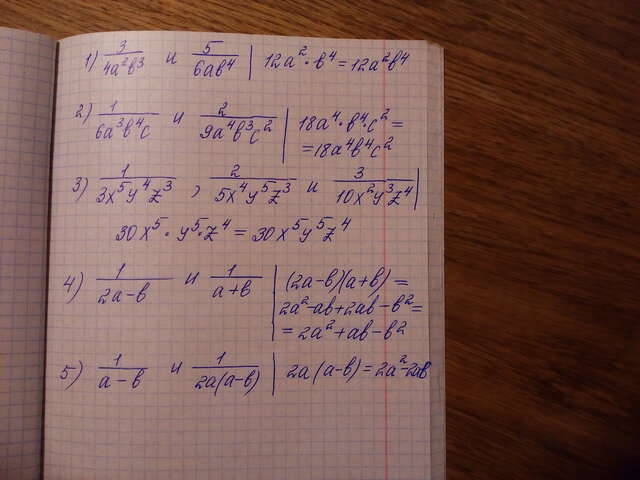 1) 3/4a²b³ и 5/6ab⁴ | 12a²·b⁴ = 12a²b⁴
2) 1/6a³b⁴c и 2/9a⁴b³c² | 18a⁴·b⁴·c² =
= 18a⁴b⁴c²
3) 1/3x⁵y⁴z³ , 2/5x⁴y⁵z³ и 3/10x²y³z⁴ |
30x⁵·y⁵·z⁴ = 30x⁵y⁵z⁴
4) 1/2a-b и 1/a+b | (2a-b)(a+b) =
2a²-ab+2ab-b² =
= 2a²+ab-b²
5) 1/a-b и 1/2a(a-b) | 2a(a-b) = 2a²-2ab